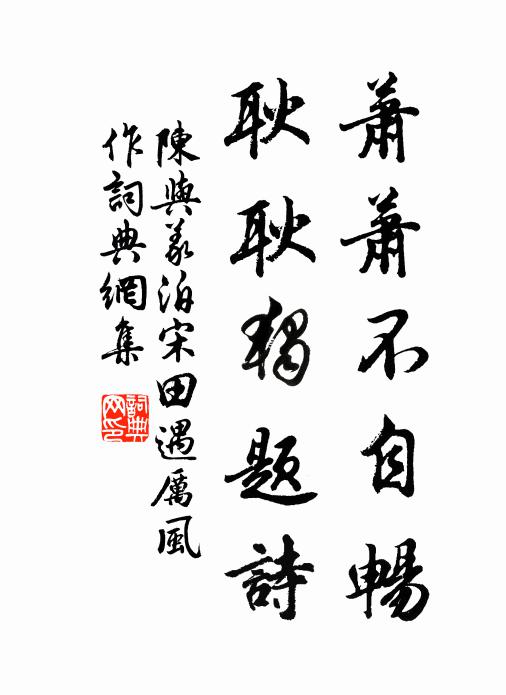 蕭蕭不自暢
耿耿獨題詩
陳與義泊宋田遇厲風
作詞典網集
詞典
网印